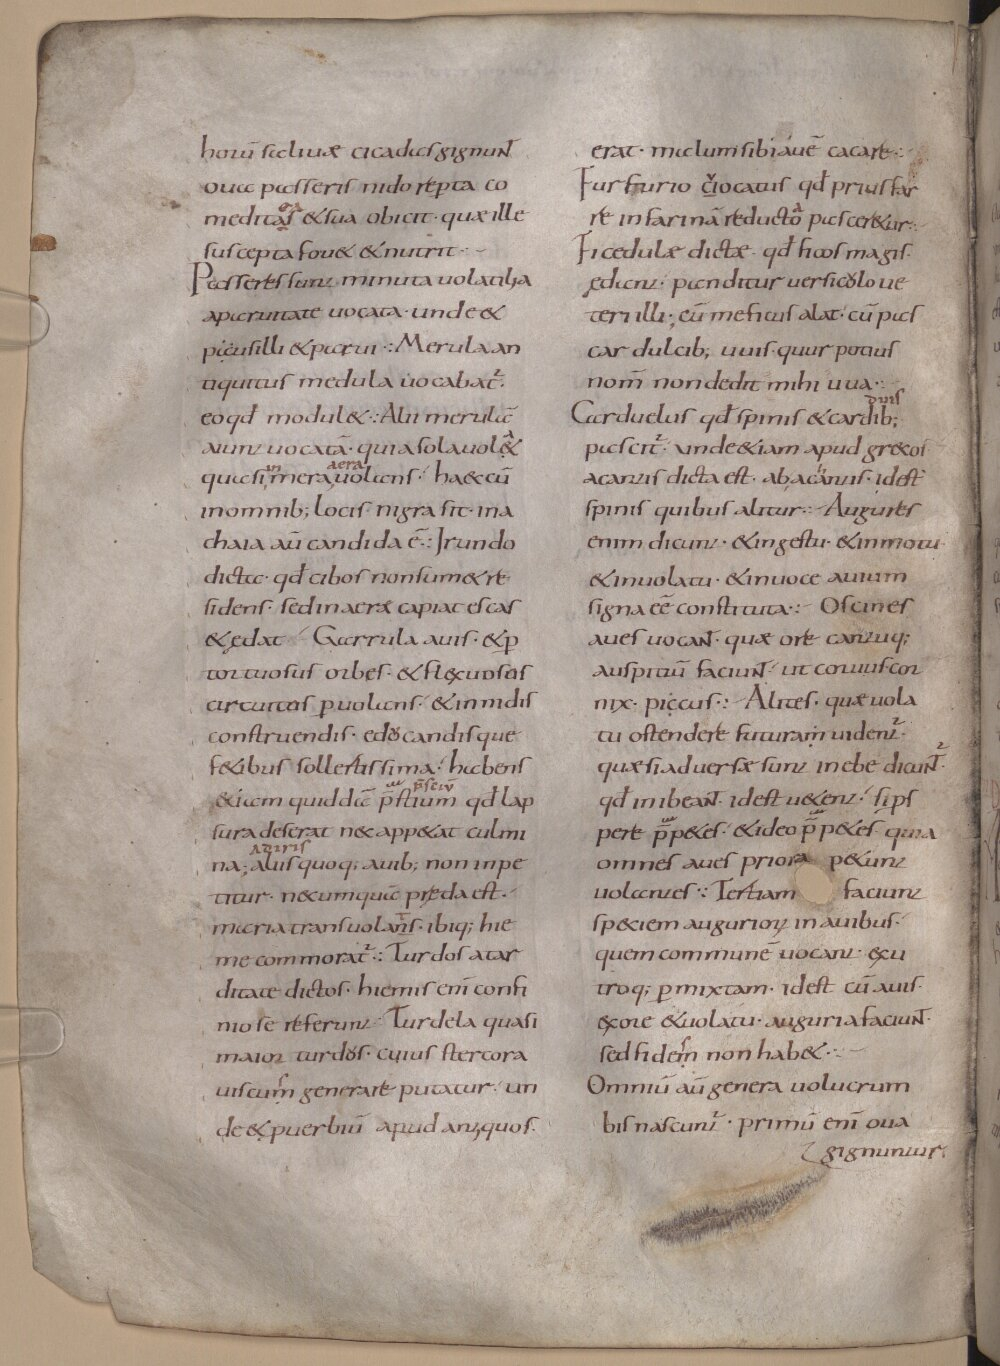 horū saliuæ cicadas gignunt̄
oua passeris nido repta co
meditas & sua obicit· quæ ille
suscepta fou& & nutrit·
Passeres sunt minuta uolatilia
a paruitate uocata· unde &
pusilli & parui·: Merula an
tiquitus medula uocabat̄·
eo qđ modul&·: Alii merulā
aiunt uocatā· quia sola uol&
quasi mera uolans· haec cū
in omnib; locis nigra sit· in a
chaia aū candida ē·: Irundo
dicta· qđ cibos non sum& re
sidens· sed in aere capiat escas
& edat Garrula auis· & ꝑ
tortuosus orbes· & flexuosas
circuitas ꝑuolans· & in nidis
construendis· educandisque
fetibus sollertissima· habens
& iam quiddā p̄stium qđ lap
sura deserat nec appetat culmi
na; auis quoq; auib; non inpe
titur· nec umquā preda est·
maria transuolans· ibiq; hie
me commorat̄·: Turdos a tar
ditate dictos· hiemis enī confi
nio se referunt Turdela quasi
maior turdus· cuius stercora
uiscum generare putatur· un
de & puerbiū apud antiquos·
erat· malum sibi auē cacare·:
Furfurio uocatus qđ prius far
re in farinā reducto pasceretur·:
Ficedulæ dictæ· qđ ficos magis
edant· panditur uersiculo ue
teri illi; cū me ficus alat· cū pas
car dulcib; uuis· quur potius
nom̄ non dedit mihi uua·:
Carduelus qđ spinis & cardib;
pascit̄· unde & iam apud grecos
acantis dicta est· ab acantis· id est
spinis quibus alitur·: Augures
enim dicunt· & in gestu· & in motu
& in uolatu· & in uoce auium
signa eē constituta·: Oscines
aues uocant̄· quæ ore cantuq;
auspitiū faciunt̄· ut coruus cor
nix· piccus·: Alites· quæ uola
tu ostendere futuram uident̄·
quæ si aduersæ sunt inebe dicunt̄·
qđ inibeant̄· id est uetent· si ps
pere p̄petes· & ideo p̄petes· quia
omnes aues priora petunt
uolantes·: Tertiam faciunt
speciem auguriorum in auibus·
quem communē uocant· ex u
troq; ꝑmixtam· id est cū auis·
ex ore & uolatu· auguria faciunt̄·
sed fidem non hab&·:
Omniū aū genera uolucrum
bis nascunt̄· primū enī oua
gignuntur·